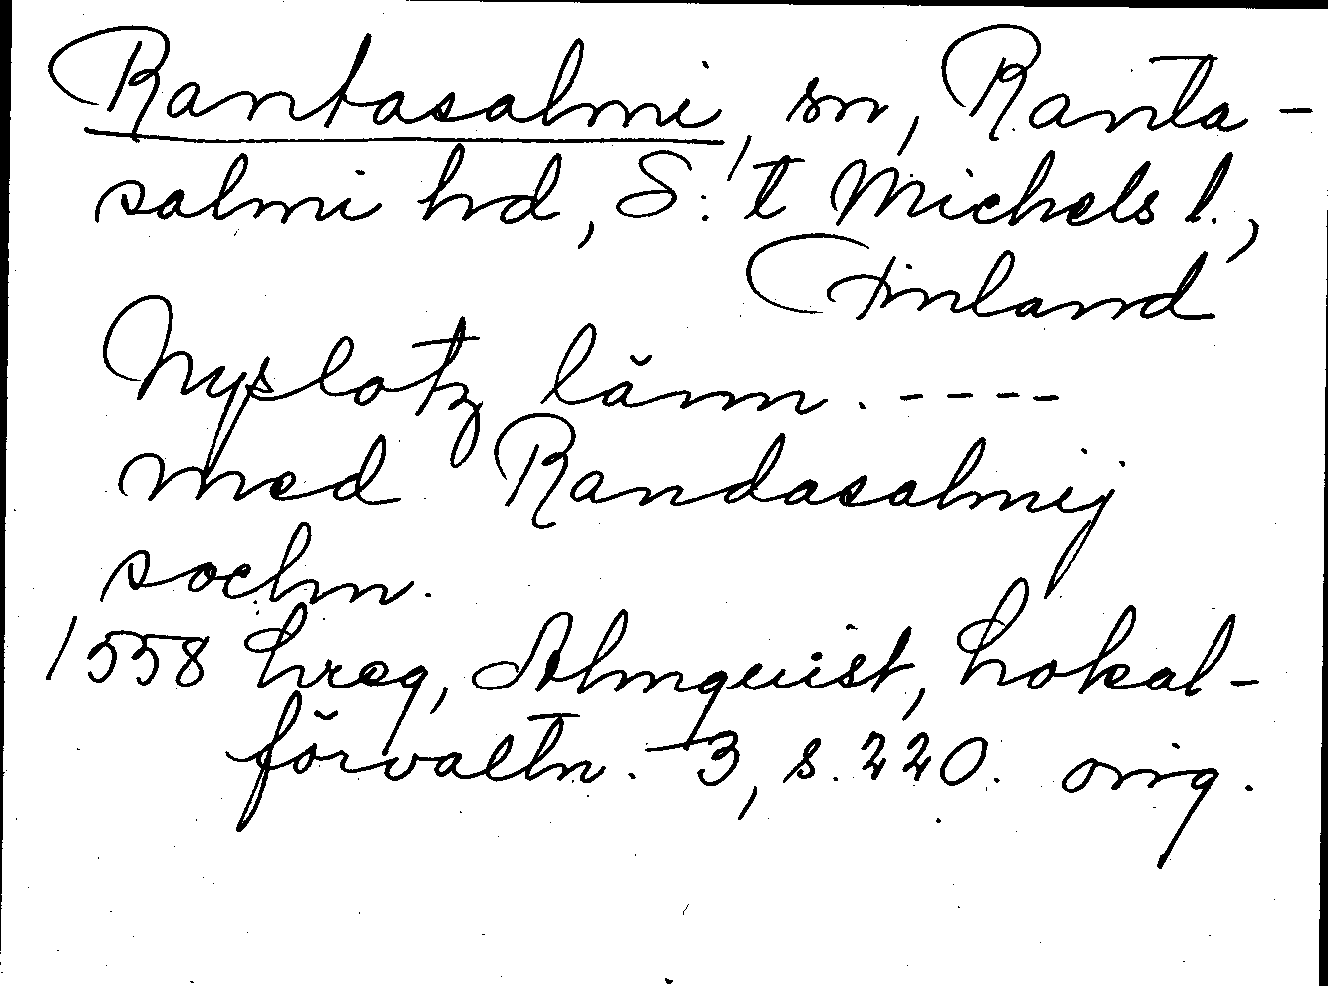 Rantasalmi, sn, Ranta-
salmi hd, S:t Michels l.,
Finland
Nyslotz länn. - - - -
med Randasalmij
sochn.
1558 hreg, Almquist, Lokal-
förvaltn. 3, s. 220. orig.